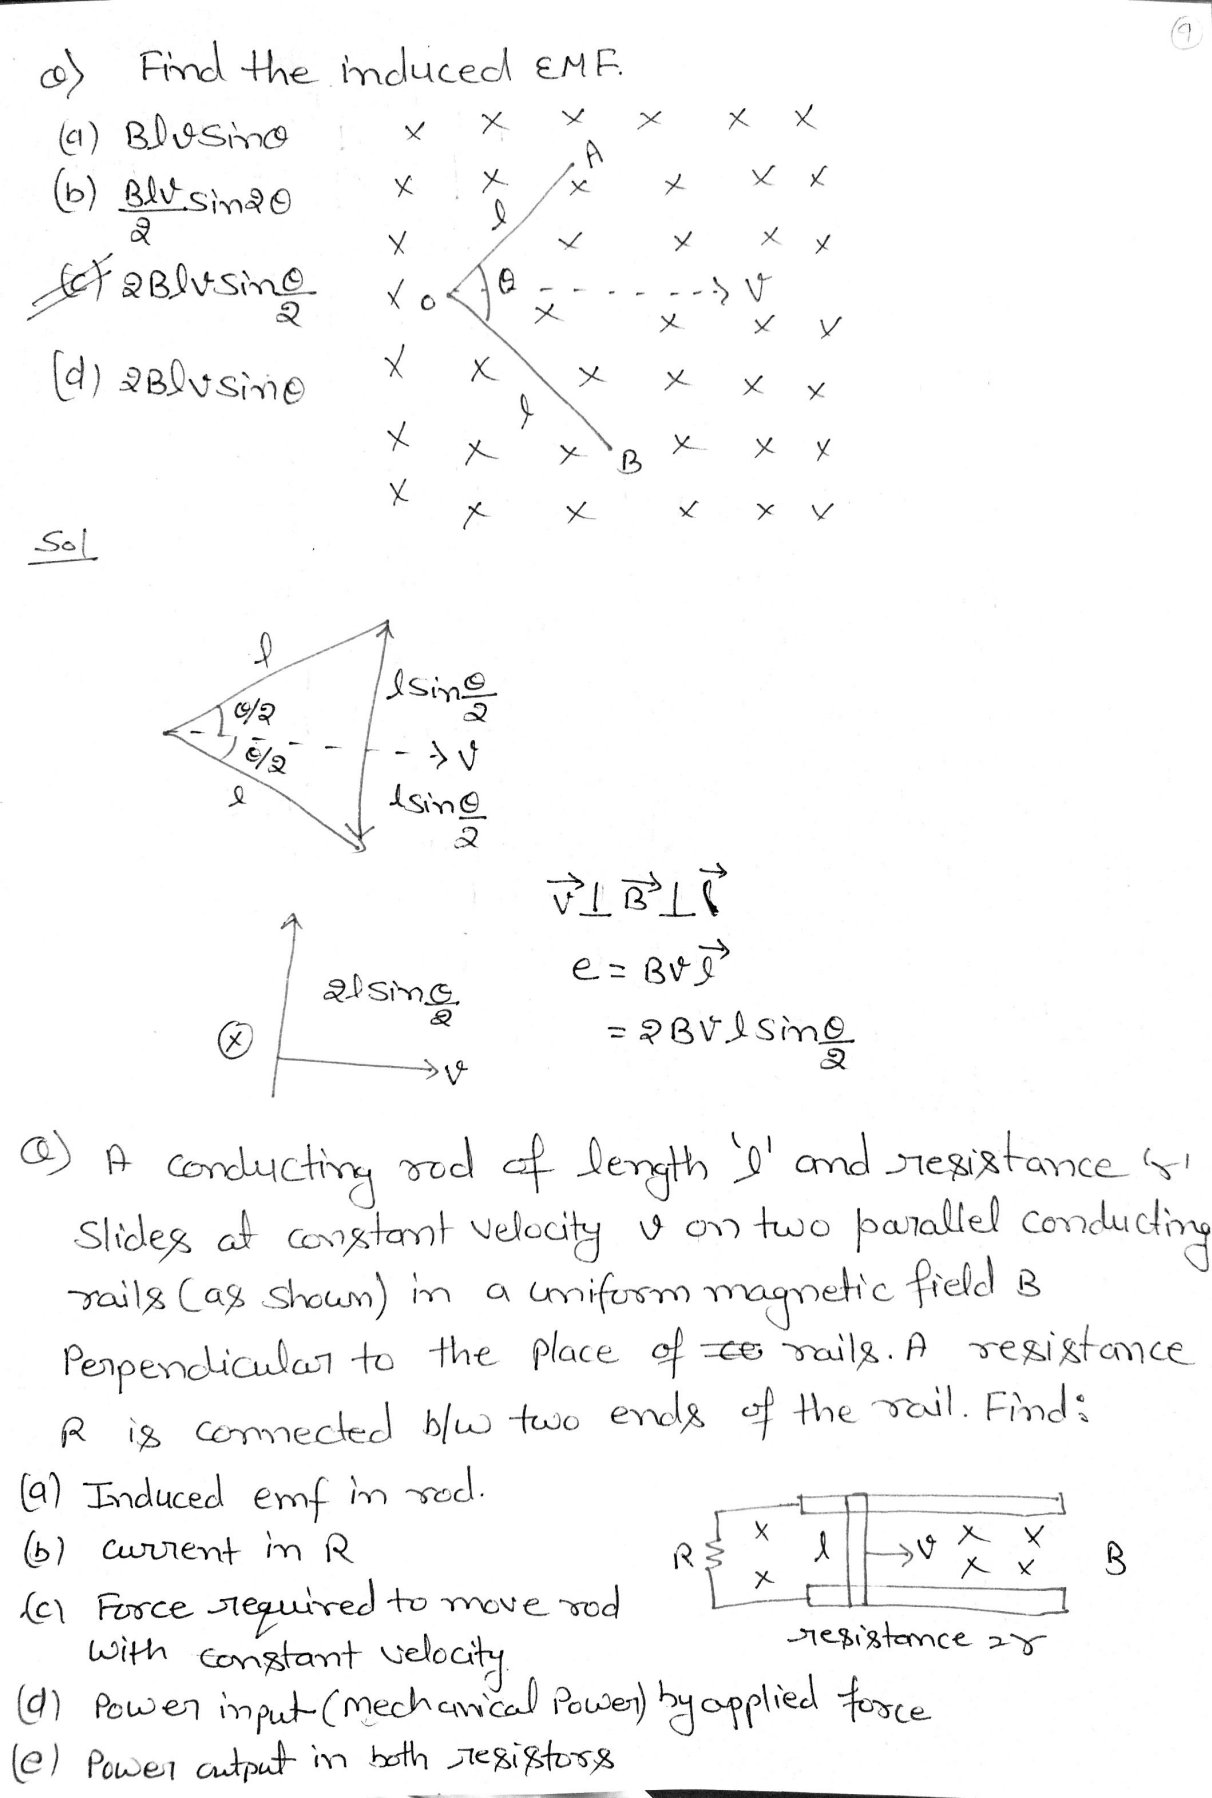 9
Q) Find the induced EMF.
(a) Blvsinθ
(b) Blv/2 sin2θ
(c) 2Blvsinθ/2
(d) 2Blvsinθ
x x x x x x
A
x x x x x x
l
x x x x x
x O θ v
x x x v
x x x x x x
l
x x x B x x x
x
x x x x v
Sol
l
lsinθ/2
θ/2
θ/2 v
l
lsinθ/2
v⃗ ⊥ B⃗ ⊥ l⃗
e = Bv l⃗
2lsinθ/2
= 2Bvlsinθ/2
x
v
Q) A conducting rod of length 'l' and resistance 'r'
Slides at constant velocity v on two parallel conducting
rails (as shown) in a uniform magnetic field B
Perpendicular to the place of rails. A resistance
R is connected b/w two ends of the rail. Find:
(a) Induced emf in rod.
(b) current in R
(c) Force required to move rod
with constant velocity.
(d) Power input (mechanical Power) by applied force
(e) Power output in both resistors
x l v x x
R B
x x x
resistance = r